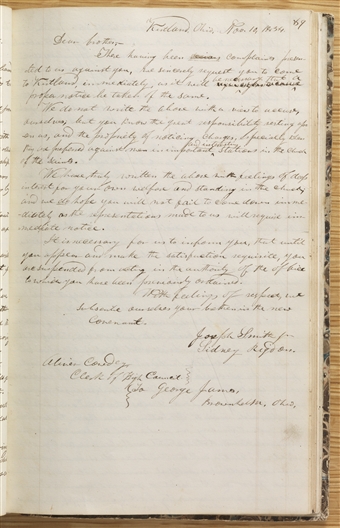 89
Kirtland Ohio, Nov. 10, 1834.
Dear brother,
There having been complaints prefer
ed to us against you, we sincerely request you to come
to Kirtland immediately, as it will be necessary that a
proper notice be taken of the same.
We do not write the above with a view to
ourselves, but you know the great responsibility resting up
on us, and the propriety of noticing charges, especially when
they are prefered against men in important stations in the church
of the saints.
We have, truly, written the above with feelings of deep
interest for your own welfare and standing in the church,
and we do hope you will not fail to come down imme
diately as the representations made to us will require im
mediate notice.
It is necessary for us to inform you, that until
you appear and make the satisfaction requisite, you
are suspended from acting in the authority of the office
to which you have been previously ordained.
With feelings of respect, we
subscribe ourselves your brethren in the new
covenant.
Joseph Smith jr
Sidney Rigdon.
Oliver Cowdery
Clerk of High Council
To George James,
Brownhelm, Ohio.